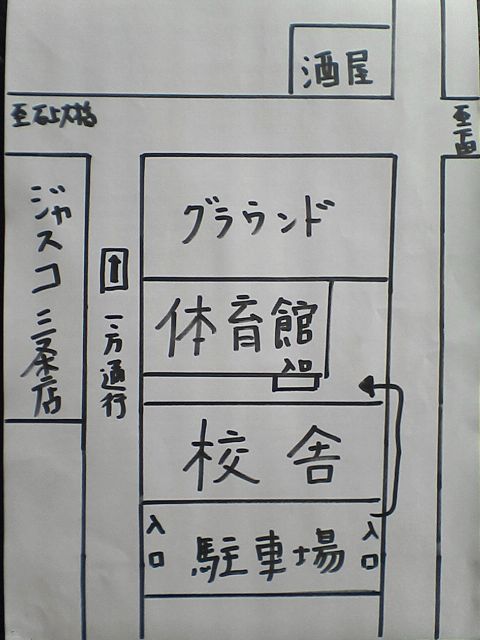 酒屋
至石上大橋
至下田
グラウンド
ジャスコ三条店
一方通行
体育館
入口
校舎
入口
駐車場
入口